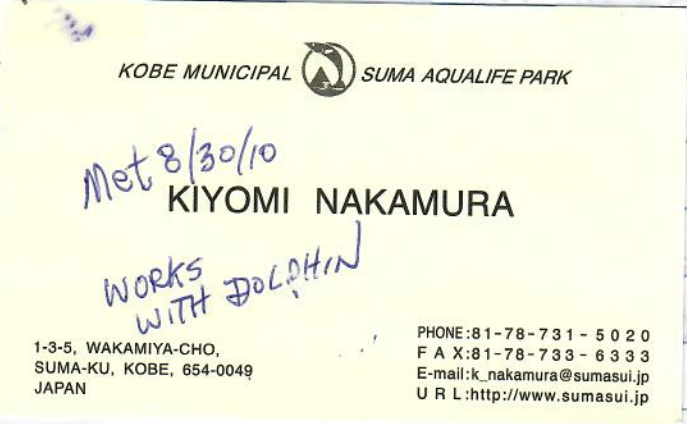 KOBE MUNICIPAL SUMA AQUALIFE PARK
Met 8/30/10
KIYOMI NAKAMURA
WORKS
WITH DOLPHIN
1-3-5, WAKAMIYA-CHO,
SUMA-KU, KOBE, 654-0049
JAPAN
PHONE:81-78-731-5020
FAX:81-78-733-6333
E-mail:k_nakamura@sumasui.jp
URL:http://www.sumasui.jp